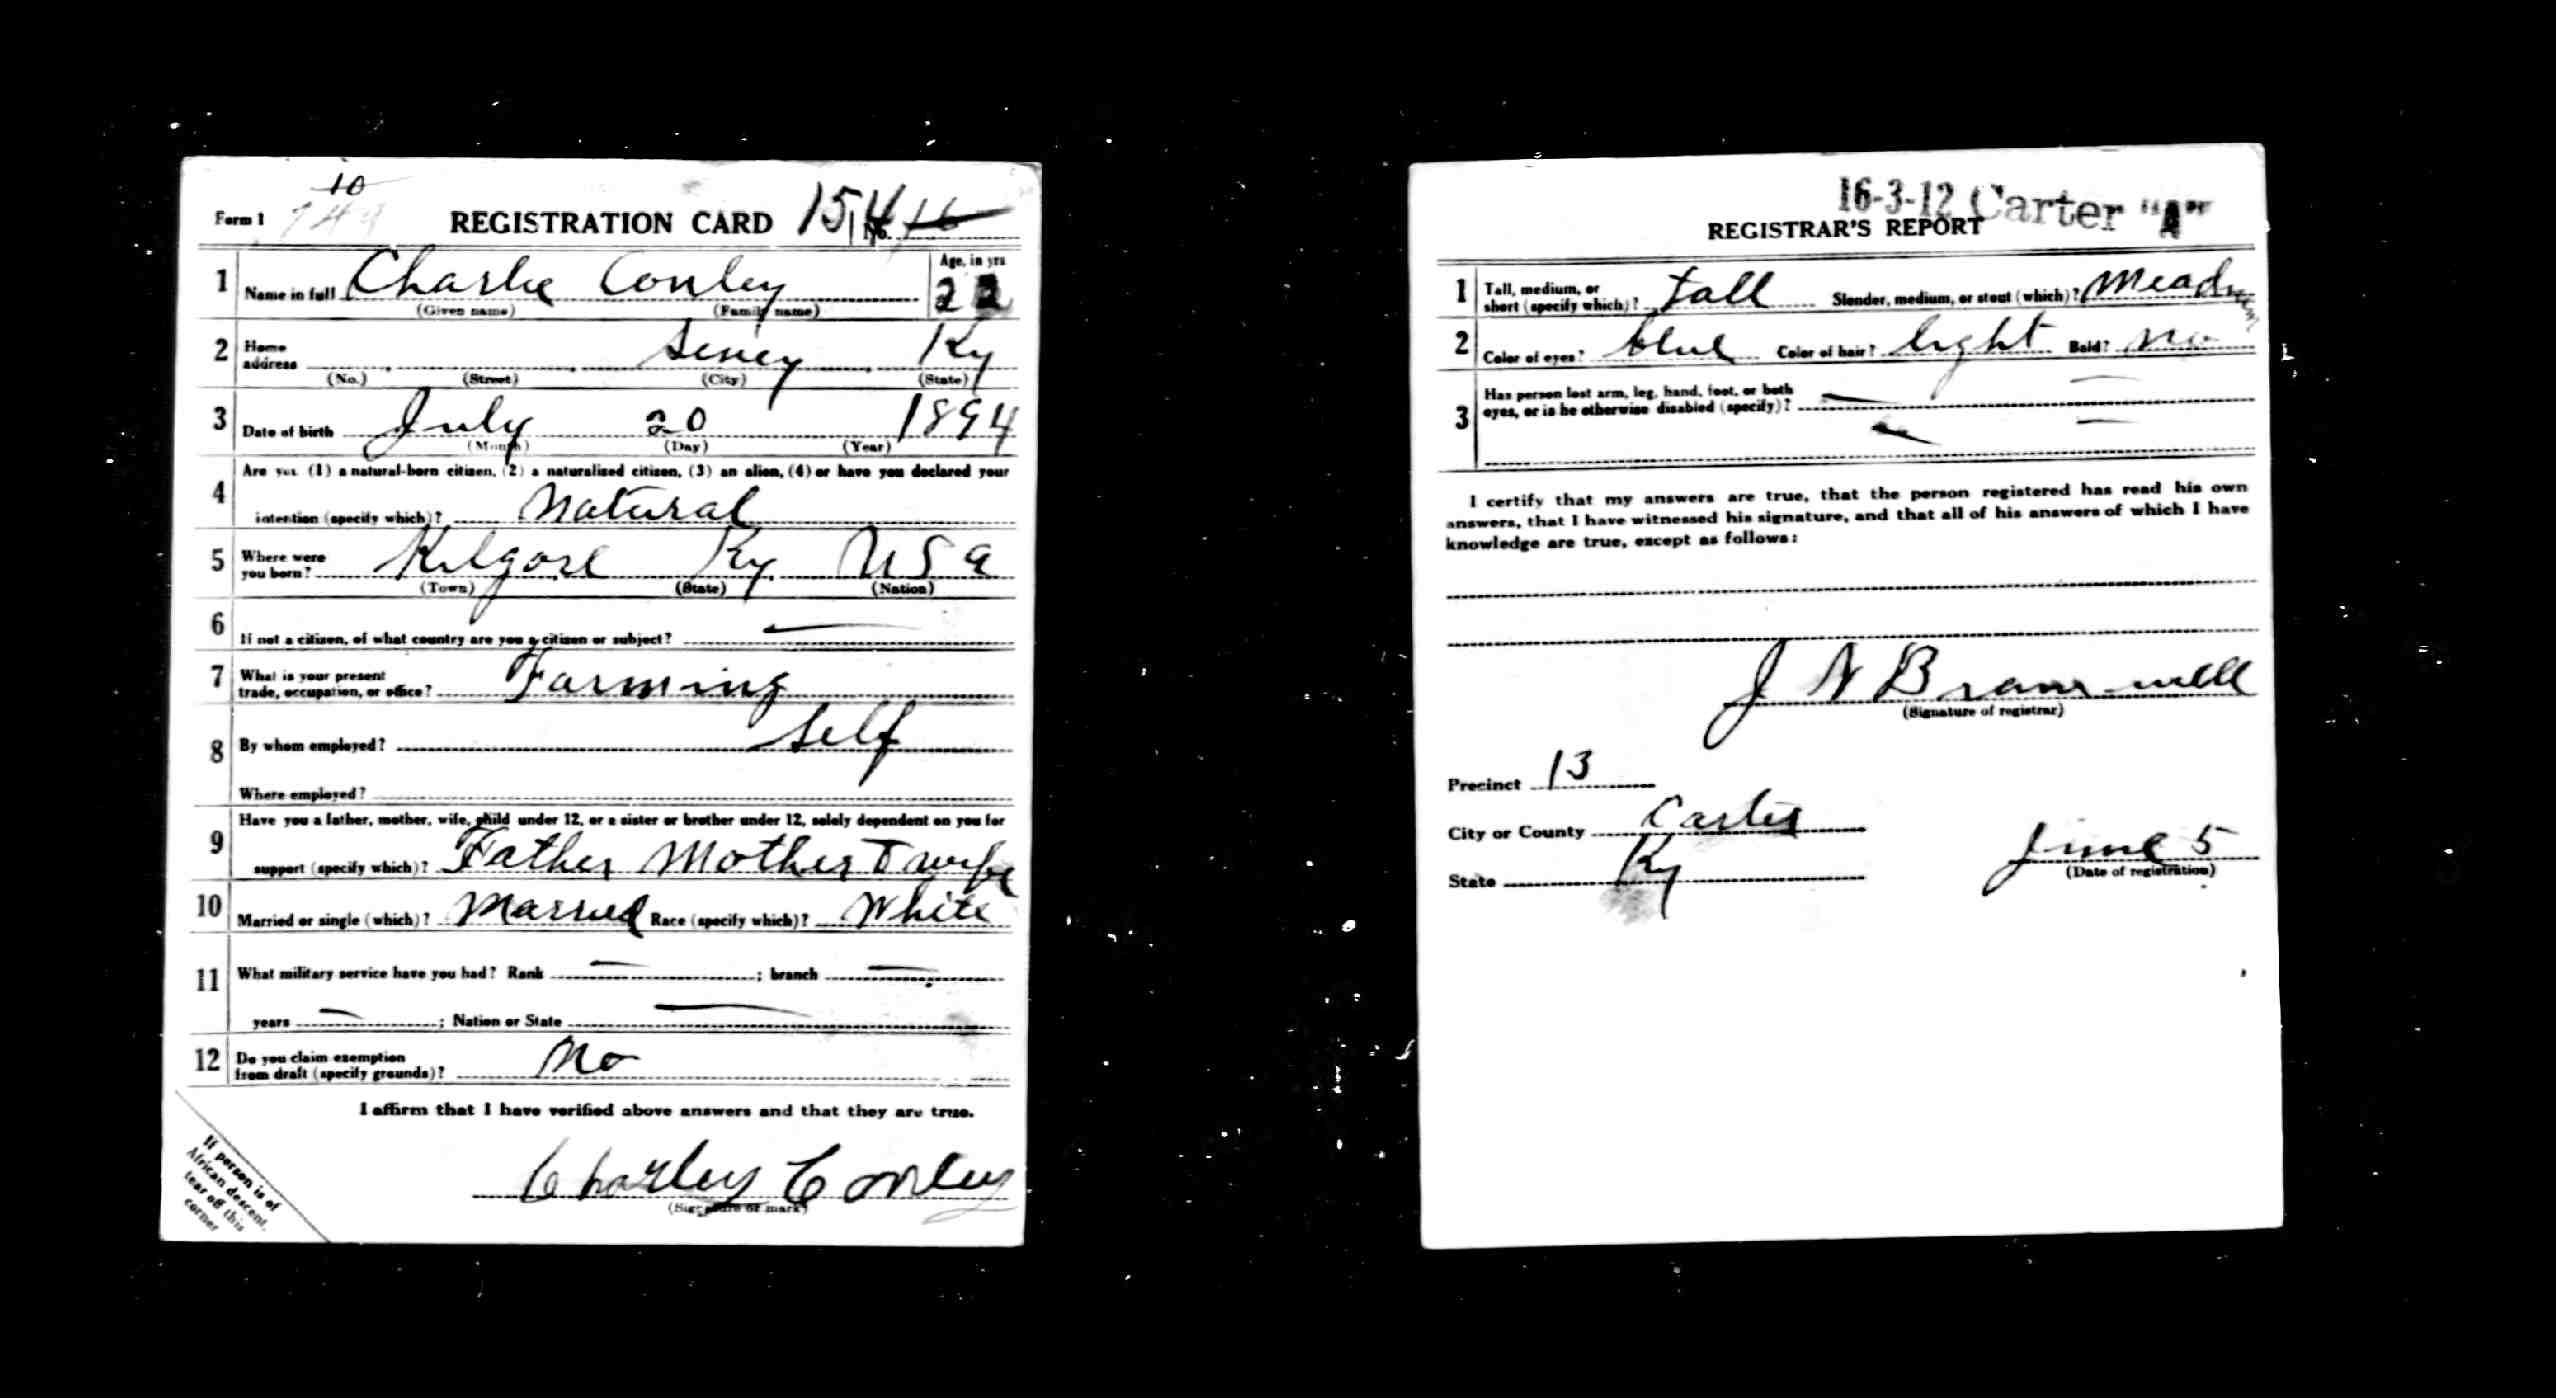 10
Form 1 749 REGISTRATION CARD 154 No. 16
1 Name in full Charlie Conley Age, in yrs 22
(Given name) (Family name)
2 Home address Seney Ky
(No.) (Street) (City) (State)
3 Date of birth July 20 1894
(Month) (Day) (Year)
4 Are you (1) a natural-born citizen, (2) a naturalized citizen, (3) an alien, (4) or have you declared your
intention (specify which)? Natural
5 Where were you born? Kilgore Ky USA
(Town) (State) (Nation)
6 If not a citizen, of what country are you a citizen or subject? —
7 What is your present trade, occupation, or office? Farming
8 By whom employed? Self
Where employed?
9 Have you a father, mother, wife, child under 12, or a sister or brother under 12, solely dependent on you for
support (specify which)? Father Mother & wife
10 Married or single (which)? Married Race (specify which)? White
11 What military service have you had? Rank — ; branch —
years — ; Nation or State —
12 Do you claim exemption from draft (specify grounds)? No
I affirm that I have verified above answers and that they are true.
Charley Conley
(Signature or mark)
If person is of
African descent,
tear off this
corner
16-3-12 Carter "A"
REGISTRAR'S REPORT
1 Tall, medium, or short (specify which)? tall Slender, medium, or stout (which)?
2 Color of eyes? blue Color of hair? light Bald? no
3 Has person lost arm, leg, hand, foot, or both
eyes, or is he otherwise disabled (specify)? —
I certify that my answers are true, that the person registered has read his own
answers, that I have witnessed his signature, and that all of his answers of which I have
knowledge are true, except as follows:
J N Bramwell
(Signature of registrar)
Precinct 13
City or County Carter
State Ky
June 5
(Date of registration)